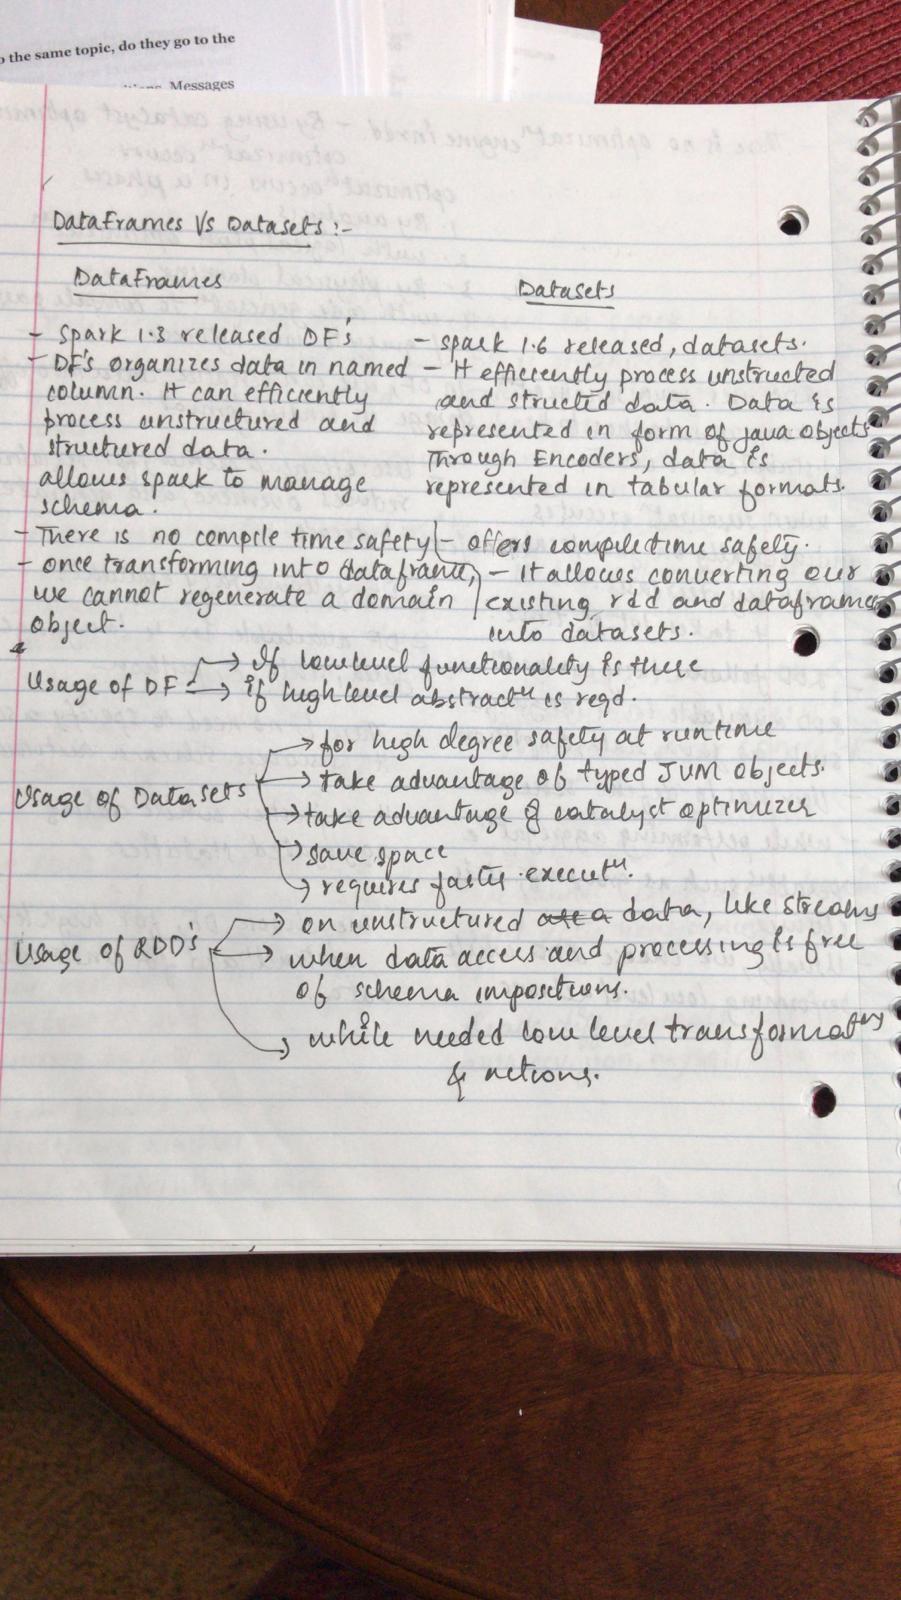 o the same topic, do they go to the
Messages
DataFrames Vs Datasets :-
DataFrames
- Spark 1.3 released DF's
- DF's organizes data in named
column. It can efficiently
process unstructured and
structured data.
allows spark to manage
schema.
- There is no compile time safety
- once transforming into dataframe,
we cannot regenerate a domain
object.
Datasets
- spark 1.6 released, datasets.
- It efficiently process unstructed
and structed data. Data is
represented in form of java objects
Through Encoders, data is
represented in tabular formats.
- offers compile time safety.
- It allows converting our
existing rdd and dataframes
into datasets.
Usage of DF
→ If low level functionality is there
→ if high level abstractn is reqd.
Usage of Datasets
→ for high degree safety at runtime
→ take advantage of typed JVM Objects.
→ take advantage of catalyst optimizer
→ save space
→ requires faster executn.
Usage of RDD's
→ on unstructured data, like streams
→ when data access and processing is free
of schema impositions.
→ while needed low level transformatns
& actions.